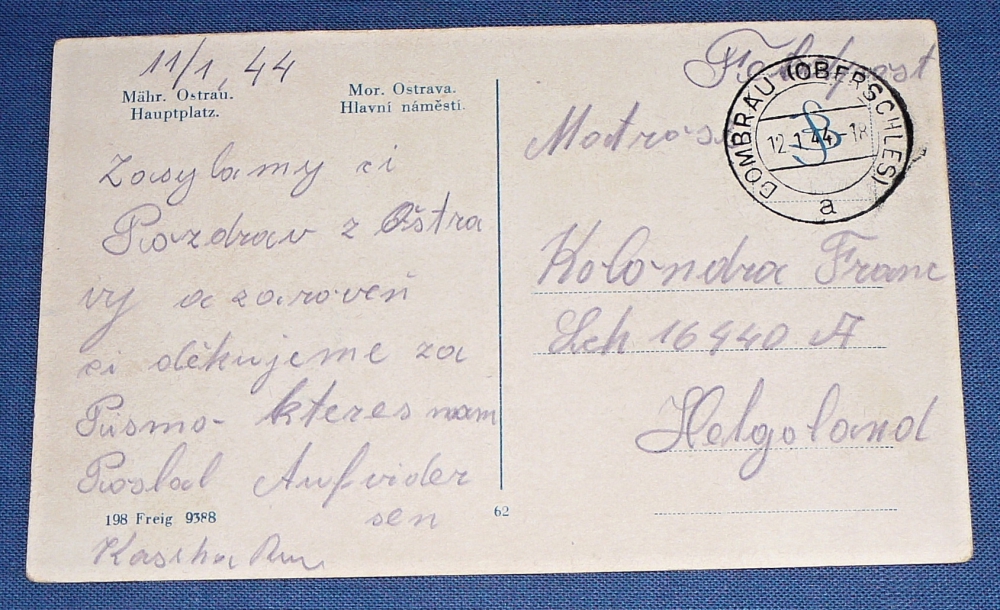 11/1, 44
Mähr. Ostrau.
Hauptplatz.
Mor. Ostrava.
Hlavní náměstí.
Zasylamy ci
Pozdrav z Ostra
vy a zaroveň
ci děkujeme za
Pismo- kteres nam
Poslal Aufvider
sen
198 Freig 9388
62
Feldpost
DOMBRAU (OBERSCHLES)
12.1.44.-18
a
Kolondra Franc
Lch 16440 A
Helgoland